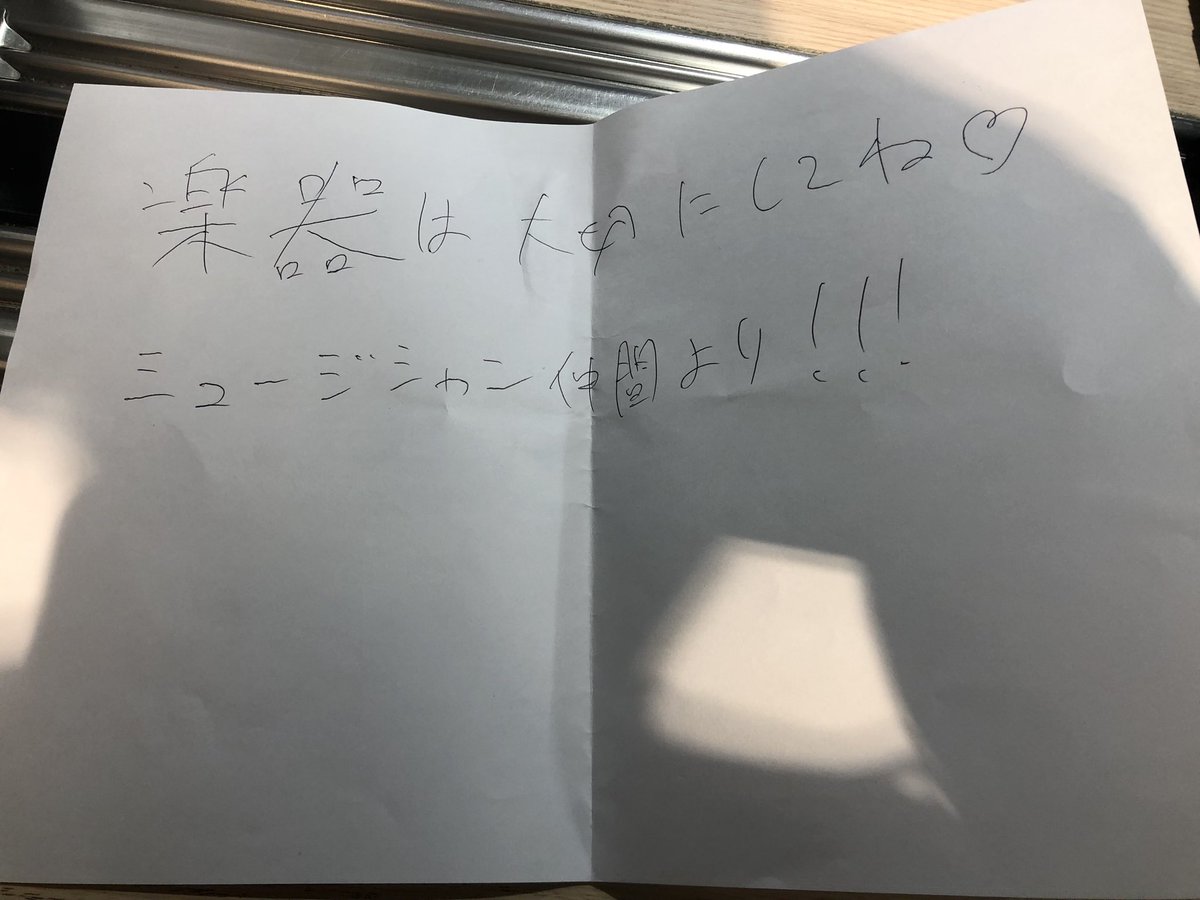 楽器は大切にしてね♡
ミュージシャン仲間より!!!